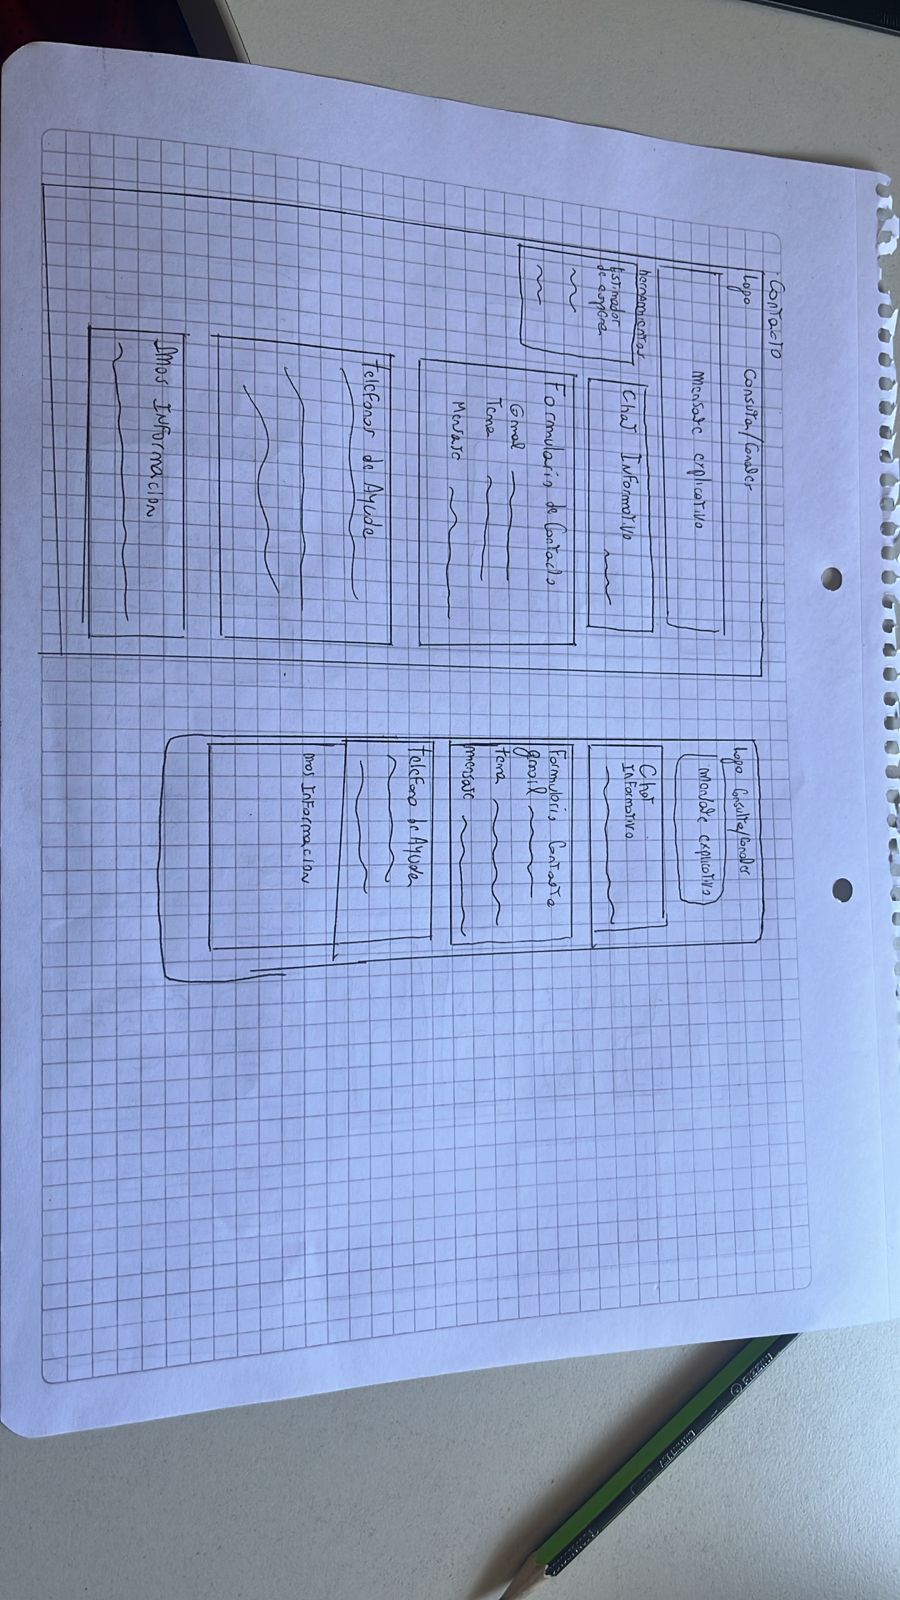 Contacto
Logo Consulta/Conocer
mensaje explicativo
herramientas
Estimador
de espera
Chat Informativo
Formulario de Contacto
Gmail
Tema
Mensaje
Telefonos de Ayuda
Mas Informacion
Logo Consulta/Conocer
mensaje explicativo
Chat
Informativo
Formulario Contacto
gmail
tema
mensaje
telefono de Ayuda
mas Informacion